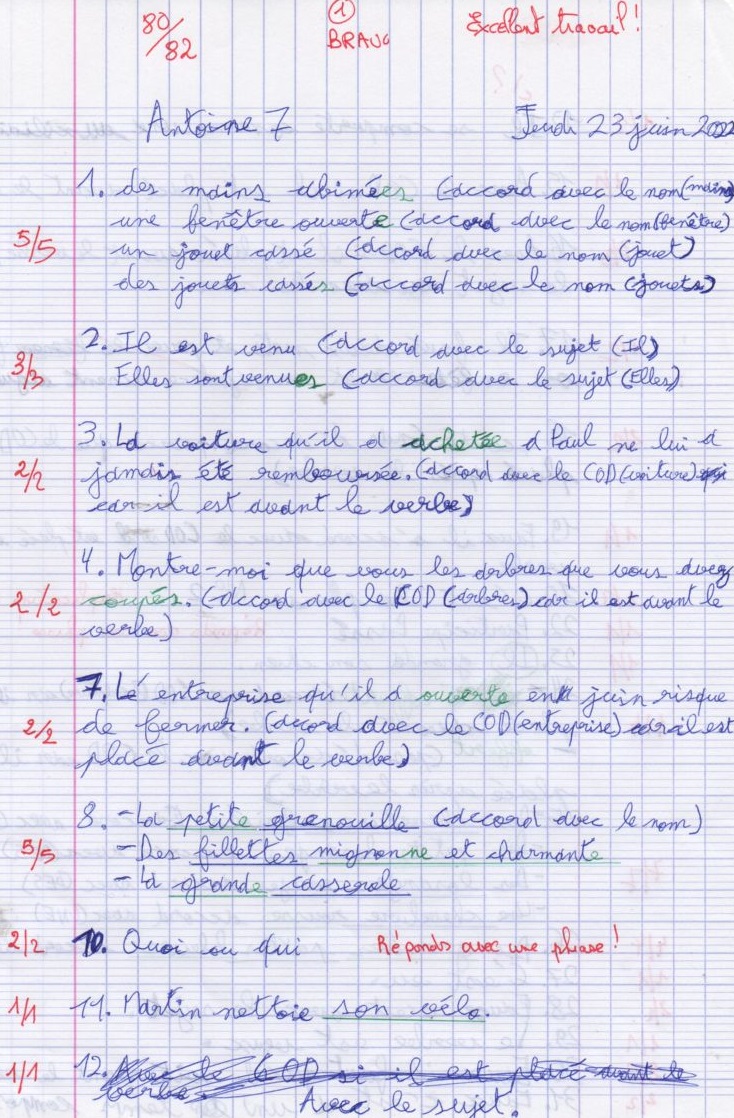 80/82
1
BRAVO
Excellent travail !
Antoine 7 Jeudi 23 juin 2022
1. des mains abimées (accord avec le nom (mains)
une fenêtre ouverte (accord avec le nom (fenêtre)
5/5 un jouet cassé (accord avec le nom (jouet)
des jouets cassés (accord avec le nom (jouets)
2. Il est venu (accord avec le sujet (Il)
3/3 Elles sont venues (accord avec le sujet (Elles)
3. La voiture qu'il a achetée a Paul ne lui a
2/2 jamais été remboursée. (accord avec le COD (voiture)
car il est avant le verbe)
4. Montre-moi que vous les arbres que vous avez
2/2 coupés. (accord avec le COD (arbres) car il est avant le
verbe)
7. Lé entreprise qu'il a ouverte en juin risque
2/2 de fermer. (accord avec le COD (entreprise) car il est
placé avant le verbe)
8. - La petite grenouille (accord avec le nom)
5/5 - Des fillettes mignonne et charmante
- La grande casserole
2/2 10. Quoi ou qui Réponds avec une phrase !
1/1 11. Martin nettoie son vélo.
1/1 12. Avec le COD si il est placé avant le
verbe.
Avec le sujet.